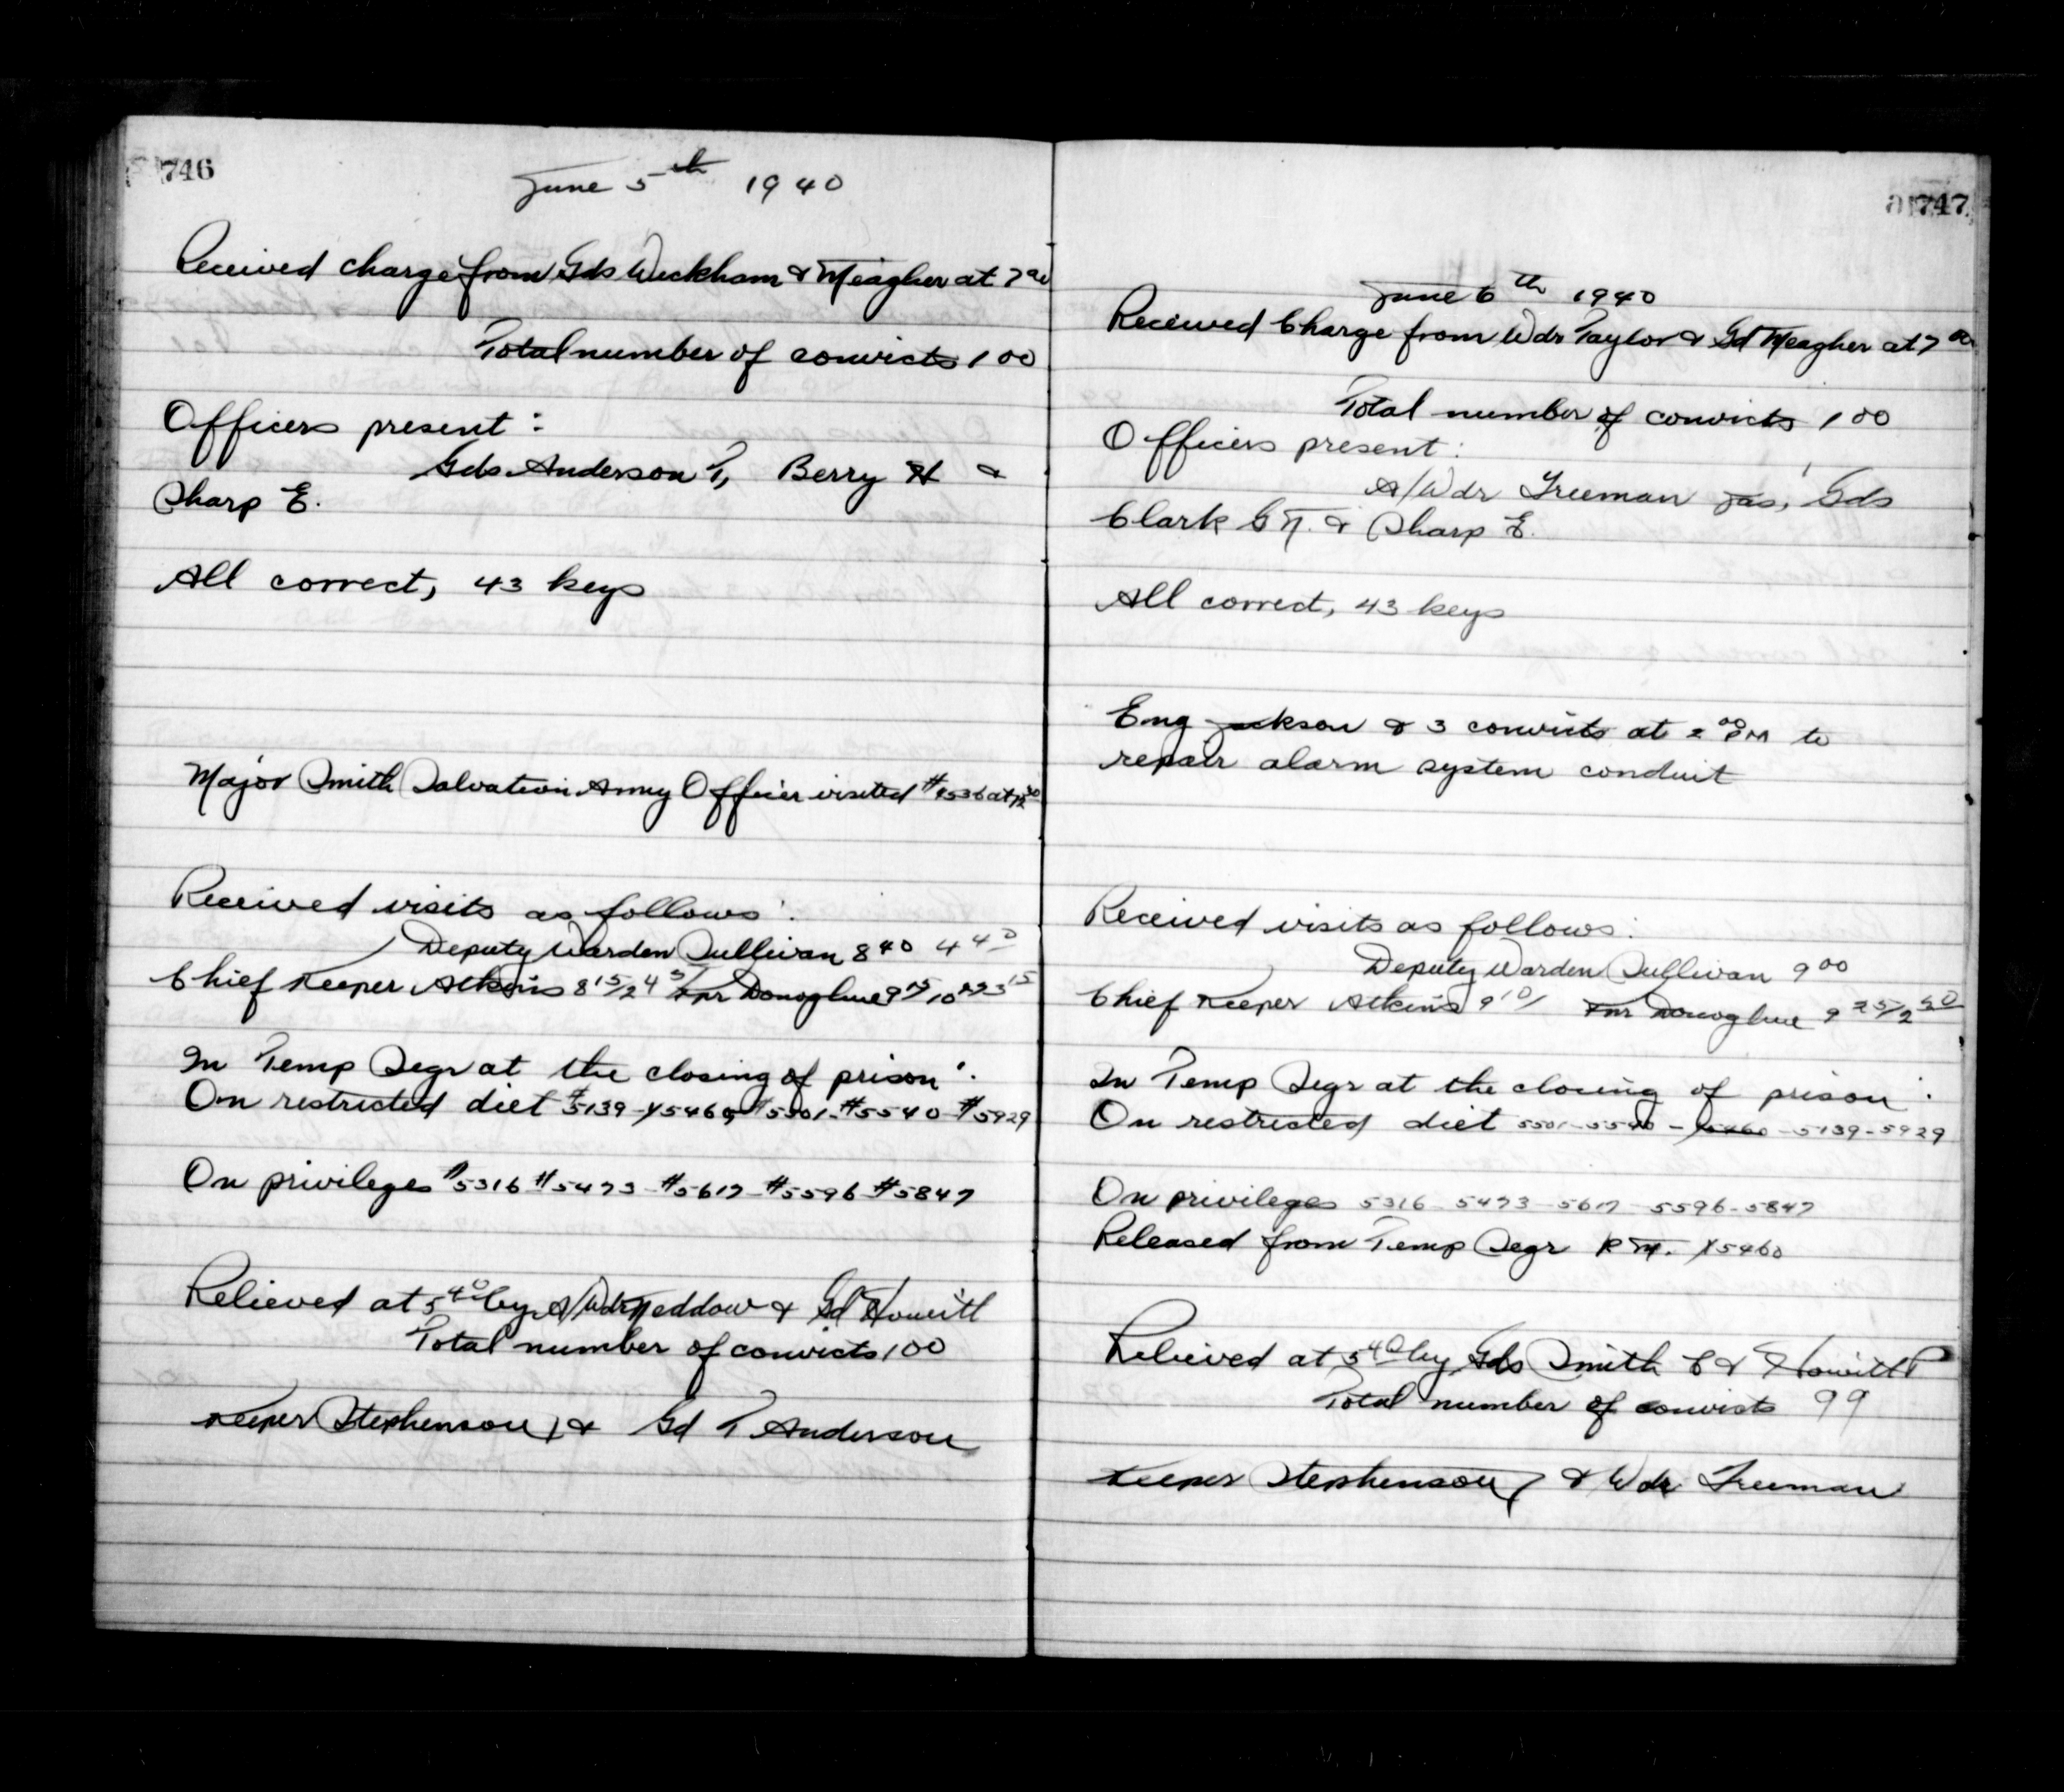 746
June 5th 1940
Received charge from Gds Weckham & Meagher at 7 00
Total number of convicts 100
Officers present :
Gds Anderson T, Berry H &
Sharp E.
All correct, 43 keys
Major Smith Salvation Army Officer visited # at
Received visits as follows :
Deputy Warden Sullivan 8 40 4 40
Chief Keeper Atkins 8 15/ Kpr Donoghue 9 15
In Temp Segr at the closing of prison :
On restricted diet #5139 - X5460 #5501 - #5540 - #5929
On privileges #5316 #5473 - #5617 - #5596 - #5847
Relieved at 5 40 by A/Wdr Neddow & Gd Howitt
Total number of convicts 100
Keeper Stephenson J & Gd T Anderson
747
June 6th 1940
Received Charge from Wdr Taylor & Gd Meagher at 7 00
Total number of convicts 100
Officers present :
A/Wdr Freeman Jas, Gds
Clark G N. & Sharp E.
All correct, 43 keys
Eng Jackson & 3 convicts at 2 00 PM to
repair alarm system conduit
Received visits as follows :
Deputy Warden Sullivan 9 00
Chief Keeper Atkins 9 10/ Kpr Donoghue 9 25/2 50
In Temp Segr at the closing of prison :
On restricted diet 5501 - 5540 - X5460 - 5139 - 5929
On privileges 5316 - 5473 - 5617 - 5596 - 5847
Released from Temp Segr R M. X5460
Relieved at 5 40 by Gds Smith C & Howitt P
Total number of convicts 99
Keeper Stephenson J & Wdr Freeman